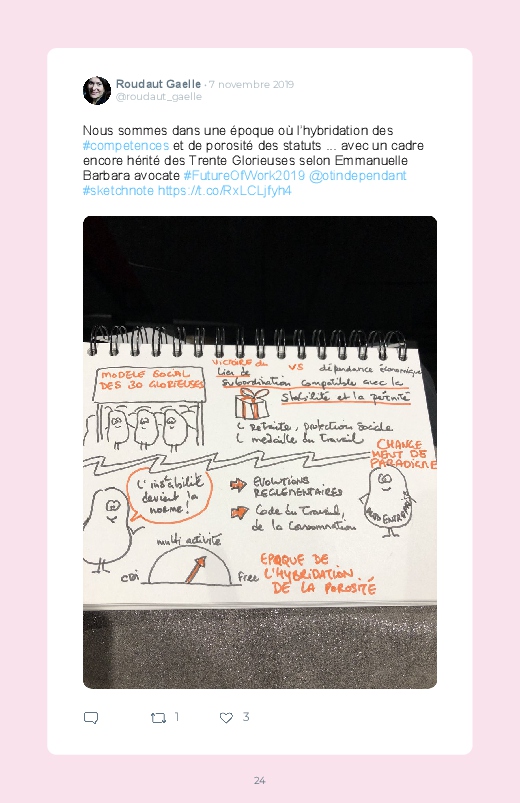 Roudaut Gaelle · 7 novembre 2019
@roudaut_gaelle
Nous sommes dans une époque où l'hybridation des
#competences et de porosité des statuts ... avec un cadre
encore hérité des Trente Glorieuses selon Emmanuelle
Barbara avocate #FutureOfWork2019 @otindependant
#sketchnote https://t.co/RxLCLjfyh4
MODELE SOCIAL
DES 30 GLORIEUSES
VICTOIRE du
Lien de
VS dépendance économique
Subordination compatible avec la
Stabilité et la pérennité
Retraite, protection sociale
medaille du travail
CHANGE
MENT DE
PARADIGME
L'instabilité
devient la
norme !
EVOLUTIONS
REGLEMENTAIRES
Code du Travail,
de la Consommation
multi activité
CDI
Free
EPOQUE DE
L'HYBRIDATION
DE LA POROSITÉ
1
3
24